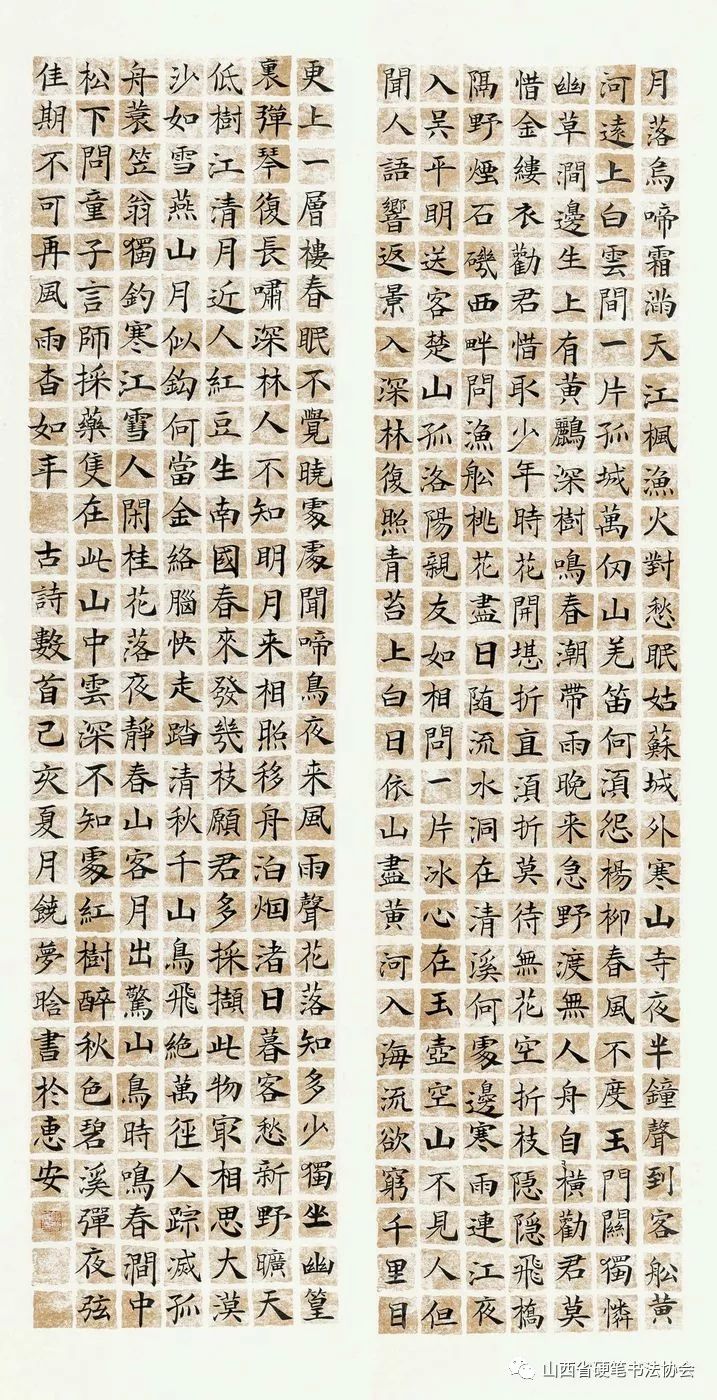 月落烏啼霜滿天江楓漁火對愁眠姑蘇城外寒山寺夜半鐘聲到客舩黃
河遠上白雲間一片孤城萬仞山羌笛何湏怨楊柳春風不度玉門關獨憐
幽草澗邊生上有黃鸝深樹鳴春潮帶雨晚来急野渡無人舟自橫勸君莫
惜金縷衣勸君惜取少年時花開堪折直湏折莫待無花空折枝隐隐飛橋
隔野煙石磯西畔問漁舩桃花盡日随流水洞在清溪何處邊寒雨連江夜
入吴平明送客楚山孤洛陽親友如相問一片冰心在玉壺空山不見人但
聞人語響返景入深林復照青苔上白日依山盡黃河入海流欲窮千里目
更上一層樓春眠不覺曉處處聞啼鳥夜来風雨聲花落知多少獨坐幽篁
裏彈琴復長嘯深林人不知明月来相照移舟泊烟渚日暮客愁新野曠天
低樹江清月近人紅豆生南國春來發幾枝願君多採擷此物㝡相思大漠
沙如雪燕山月似鈎何當金絡腦快走踏清秋千山鳥飛絶萬徑人踪滅孤
舟蓑笠翁獨釣寒江雪人閑桂花落夜靜春山客月出驚山鳥時鳴春澗中
松下問童子言師採藥隻在此山中雲深不知處紅樹醉秋色碧溪彈夜弦
佳期不可再風雨杳如年 古詩數首己亥夏月饒夢晗書於惠安
山西省硬笔书法协会